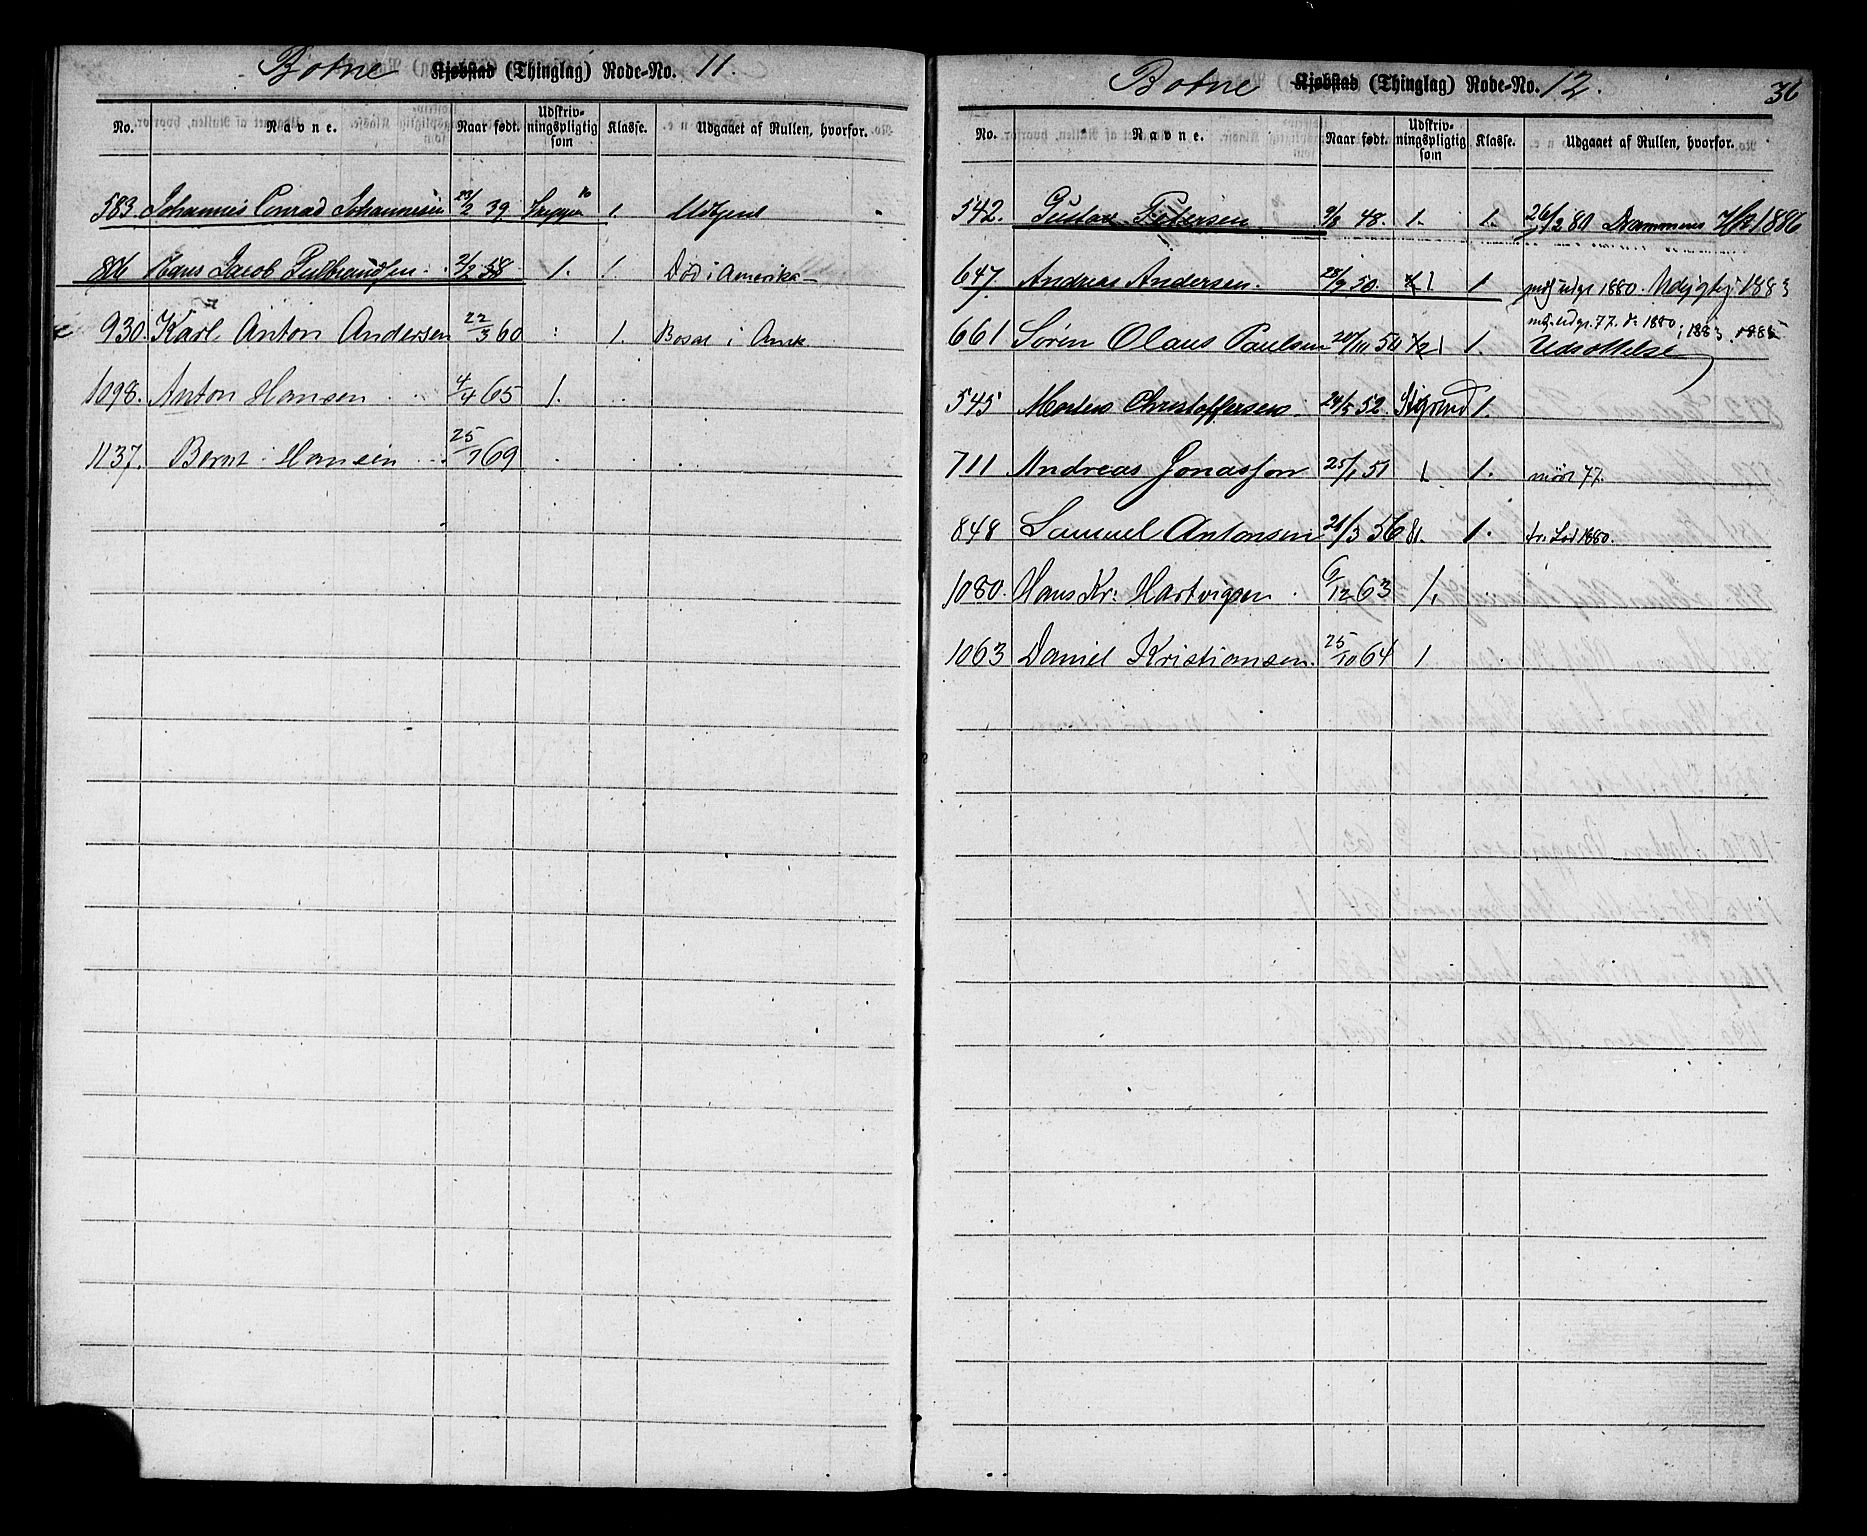 Botne Kjøbstad (Thinglag) Rode-No. 11.
No. Navne. Naar født. Udskrivningspligtig som Klasse. Udgaaet af Rullen, hvorfor.
583 Johannes Conrad Johannesen 23/2 39 1.
Hans Jacob Gulbrandsen 2/2 58 1. 1. Død i Amerika
930. Karl Anton Andersen 22/3 60 1. Bosat i Amk
1098. Anton Hansen 4/4 65 1.
1137. Bernt Hansen 25/1 69
Botne Kjøbstad (Thinglag) Rode-No. 12.
36
No. Navne. Naar født. Udskrivningspligtig som Klasse. Udgaaet af Rullen, hvorfor.
542. Gustav Petersen 9/8 48. 1. 1. 26/2 80 Drammens 1886
647. Andreas Andersen. 28/9 50 1 1. udgr 1880. 1883
661 Søren Olaus Paulsen 1. udgr. 77. 1880, 1883. 1885
Udsættelse
545 Morten Christoffersen 24/5 52. 1.
711 Andreas Jonassen 25/1 51 1 1. mødt 77.
848 Samuel Antonsen 21/3 56 1. 1880.
1080. Hans Kr: Hartvigsen 6/12 63 1.
1063 Daniel Kristiansen. 25/10 64 1